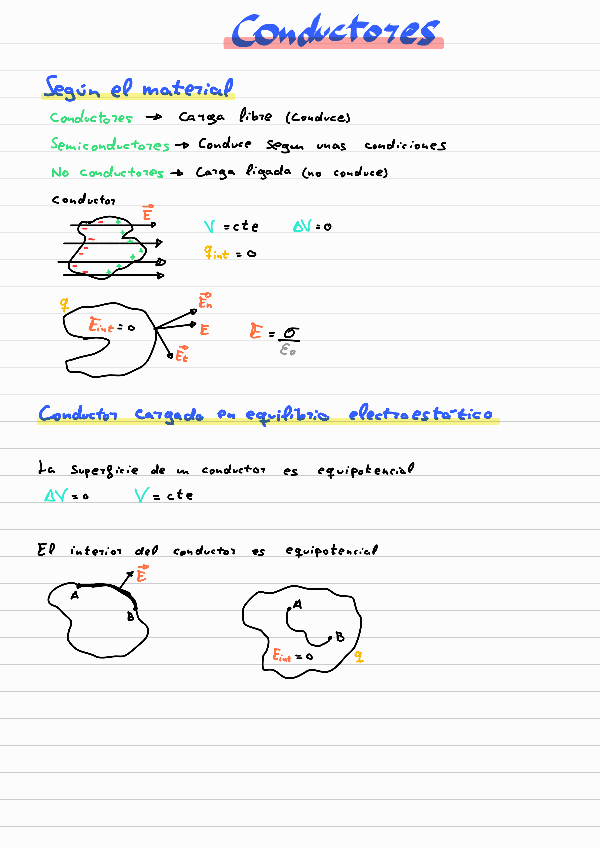 Conductores
Según el material
Conductores → Carga libre (conduce)
Semiconductores → Conduce segun unas condiciones
No conductores → Carga ligada (no conduce)
Conductor
E
V = cte ΔV = 0
q int = 0
q
E int = 0
En
E
Et
E = σ/ε0
Conductor cargado en equilibrio electroestático
La superficie de un conductor es equipotencial
ΔV = 0 V = cte
El interior del conductor es equipotencial
E
A
B
A
B
E int = 0
q